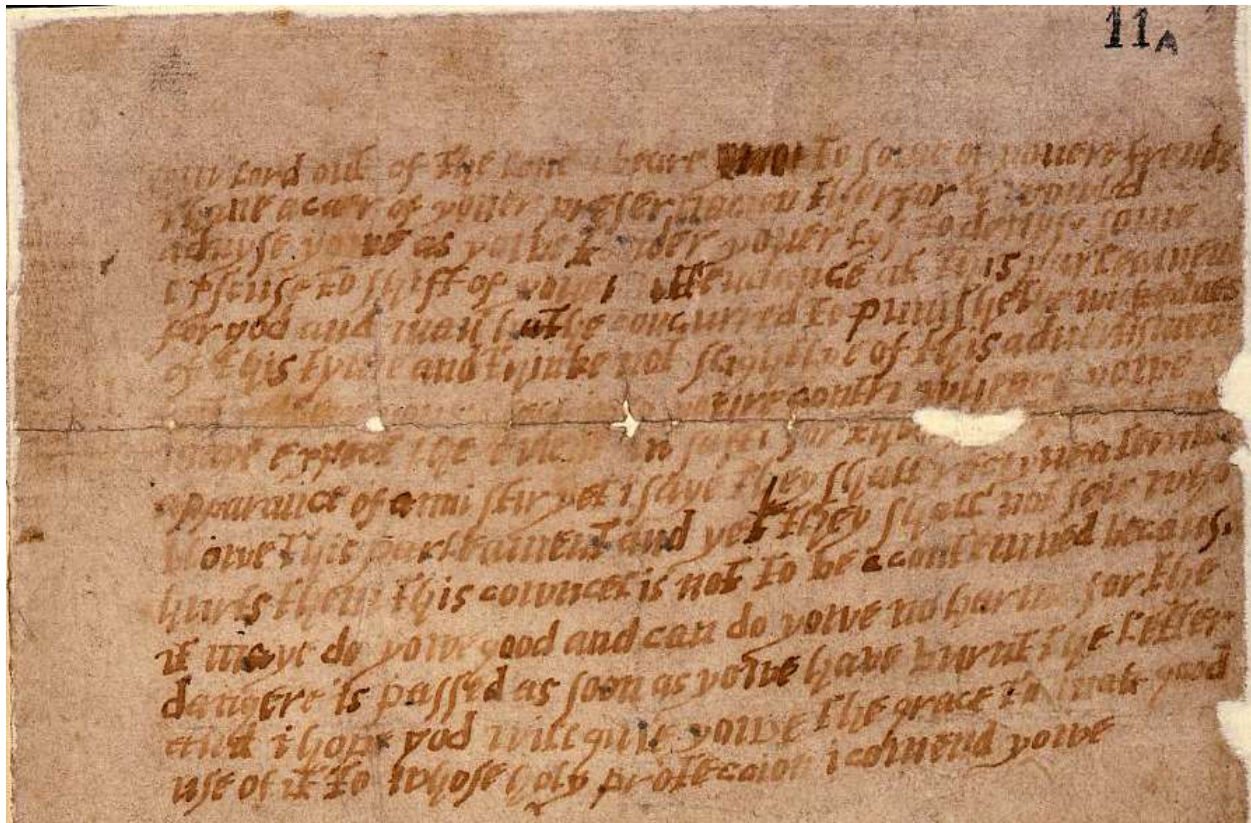 11A
lord out of the love i beare to some of youere frends
i haue a caer of youer preseruacion therfor i would
aduyse yowe as yowe tender youer lyf to deuys some
exscuse to shift of youer attendance at this parleament
for god and man hathe concurred to punishe the wickednes
of this tyme and thinke not slightlye of this aduertisment
youre contri wheare yowe
maye expect the euent in safti for
apparance of anni stir yet i saye they shall receyue a terrible
blowe this parleament and yet they shall not seie who
hurts them this cowncel is not to be acontemned because
it maye do yowe good and can do yowe no harme for the
dangere is passed as soon as yowe have burnt the letter
and i hope god will giue yowe the grace to mak good
use of it to whose holy proteccion i comend yowe